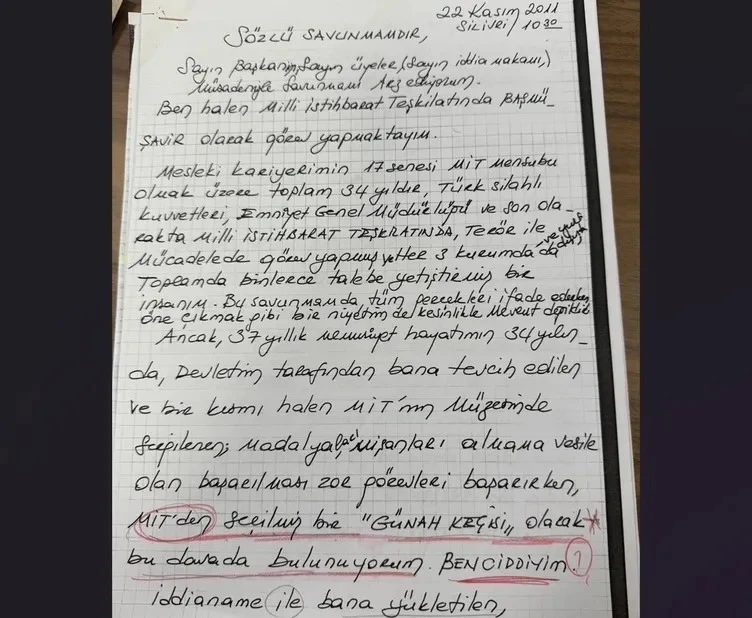 22 Kasım 2011
SİLİVRİ / 10 30
SÖZLÜ SAVUNMAMDIR,
Sayın Başkanım, Sayın üyeler, (Sayın iddia makamı,)
Müsadenizle Savunmamı Arz ediyorum.
Ben halen Milli istihbarat Teşkilatında BAŞMÜ_
ŞAVİR olarak görev yapmaktayım.
Mesleki kariyerimin 17 senesi MİT Mensubu
olmak üzere toplam 34 yıldır, Türk silahlı
kuvvetleri, Emniyet Genel Müdürlüğü ve son ola_
rakta Milli İSTİHBARAT TEŞKİLATINDA, Terör ile
Mücadelede görev yapmış ve her 3 kurumda da
Toplamda binlerce talebe yetiştirmiş bir
insanım. Bu savunmamda, tüm gerçekleri ifade ederken,
öne çıkmak gibi bir niyetim de kesinlikle Mevcut değildir
Ancak, 37 yıllık memuriyet hayatımın 34 yılın_
da, Devletim tarafından bana tevcih edilen
ve bir kısmı halen MİT'nin Müzesinde
Sergilenen; Madalya, nişanları almama vesile
olan başarılması zor görevleri başarırken,
MİT'den Seçilmiş bir "GÜNAH KEÇİSİ" olarak
bu davada bulunuyorum. BEN CİDDİYİM.
iddianame ile bana yükletilen,